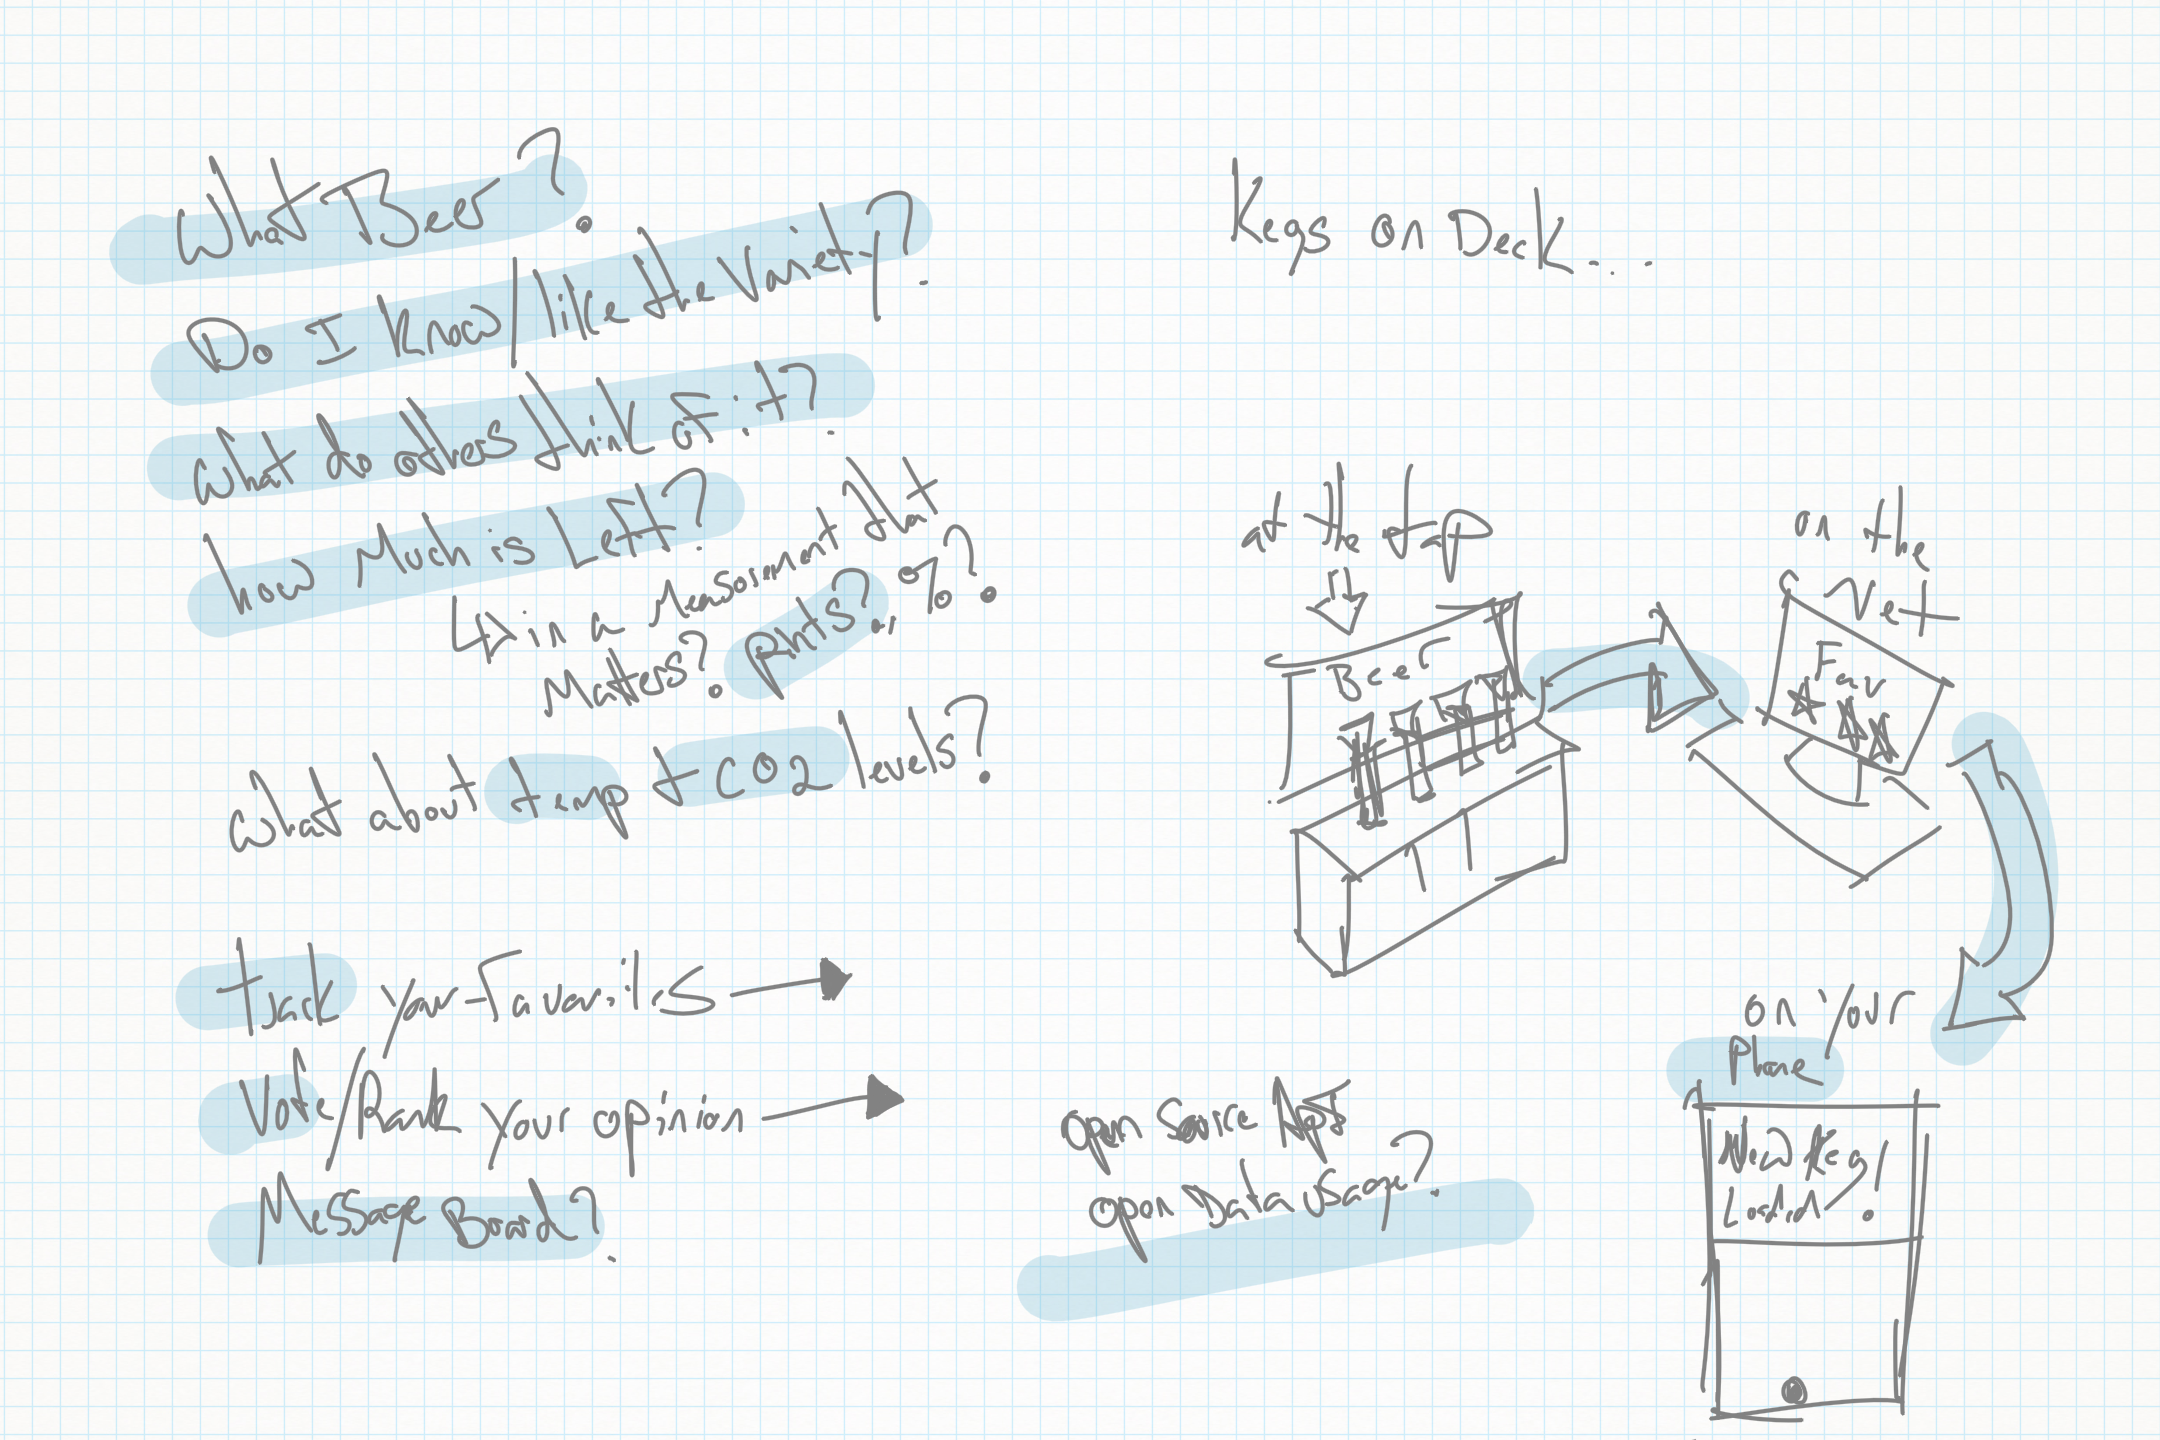 What Beer?
Do I know/like the Variety?
What do others think of it?
how Much is Left?
in a Measurement that
Matters? pints? %?
What about temp + CO2 levels?
Track your favorites
Vote/Rank your opinion
Message Board?
Kegs on Deck...
at the tap
Beer
on the
Net
Fav
on your
Phone
New Keg!
Loaded!
open Source Apps
open Data usage?